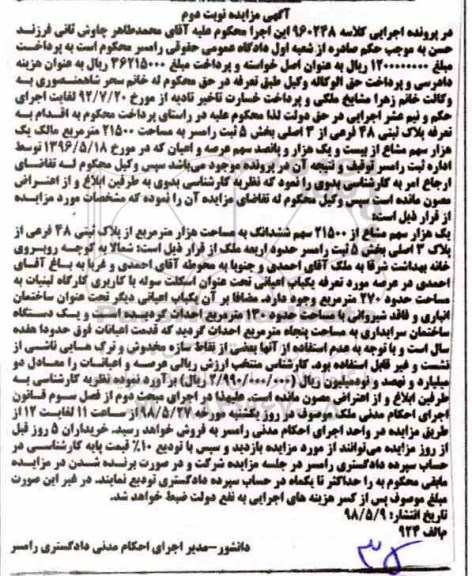 آگهی مزایده نوبت دوم
در پرونده اجرایی کلاسه ۹۶۰۲۴۸ این اجرا محکوم علیه آقای محمدطاهر چاوش ثانی فرزند
حسن به موجب حکم صادره از شعبه اول دادگاه عمومی حقوقی رامسر محکوم است به پرداخت
مبلغ ۱۲۰۰۰۰۰۰۰۰ ریال به عنوان اصل خواسته و پرداخت مبلغ ۳۶۲۱۵۰۰۰ ریال به عنوان هزینه
دادرسی و پرداخت حق الوکاله وکیل طبق تعرفه در حق محکوم له خانم سحر شاهمنصوری به
وکالت خانم زهرا مشایخ ملکی و پرداخت خسارت تاخیر تادیه از مورخ ۹۲/۷/۲۰ لغایت اجرای
حکم و نیم عشر اجرایی در حق دولت لذا محکوم علیه در راستای پرداخت محکوم به اقدام به
تعرفه پلاک ثبتی ۴۸ فرعی از ۳ اصلی بخش ۵ ثبت رامسر به مساحت ۲۱۵۰۰ مترمربع مالک یک
هزار سهم مشاع از بیست و یک هزار و پانصد سهم عرصه و اعیان که در مورخ ۱۳۹۶/۵/۱۸ توسط
اداره ثبت رامسر توقیف و نتیجه آن در پرونده موجود می‌باشد سپس وکیل محکوم له تقاضای
ارجاع امر به کارشناسی بدوی را نمود که نظریه کارشناسی بدوی به طرفین ابلاغ و از اعتراض
مصون مانده است پس وکیل محکوم له تقاضای مزایده آن را نموده که مشخصات مورد مزایده
از قرار ذیل است:
یک هزار سهم مشاع از ۲۱۵۰۰ سهم ششدانگ به مساحت هزار مترمربع از پلاک ثبتی ۴۸ فرعی از
پلاک ۳ اصلی بخش ۵ ثبت رامسر حدود اربعه ملک از قرار ذیل است: شمالا به کوچه روبروی
خانه بهداشت شرقا به ملک آقای احمدی و جنوبا به محوطه آقای احمدی و غربا به باغ آقای
احمدی در عرصه مورد تعرفه یکباب اعیانی تحت عنوان اسکلت سوله با کاربری کارگاه لبنیات به
مساحت حدود ۲۷۰ مترمربع وجود دارد. مضافا بر آن یکباب اعیانی دیگر تحت عنوان ساختمان
انباری و فاقد شیروانی به مساحت حدود ۱۳۰ مترمربع احداث گردیده است و یک دستگاه
ساختمان سرایداری به مساحت پنجاه مترمربع احداث گردید که قدمت اعیانات فوق حدودا هفده
سال است و با توجه به عدم استفاده از آنها بعضی از نقاط سازه مخدوش و ترک هایی ناشی از
نشست و غیر قابل استفاده بود. کارشناس منتخب ارزش ریالی عرصه و اعیانات را معادل دو
میلیارد و نهصد و نودمیلیون ریال (۲/۹۹۰/۰۰۰/۰۰۰ ریال) برآورد نموده نظریه کارشناسی به
طرفین ابلاغ و از اعتراض مصون مانده است. علیهذا در اجرای مبحث دوم از فصل سوم قانون
اجرای احکام مدنی ملک موصوف در روز یکشنبه مورخه ۹۸/۵/۲۷ از ساعت ۱۱ لغایت ۱۲ از
طریق مزایده در واحد اجرای احکام مدنی رامسر به فروش خواهد رسید. خریداران ۵ روز قبل
از روز مزایده می‌توانند از مورد مزایده بازدید و سپس با تودیع ۱۰٪ قیمت پایه کارشناسی در
حساب سپرده دادگستری رامسر در جلسه مزایده شرکت و در صورت برنده شدن در مزایده
مابقی محکوم به را حداکثر تا یکماه در حساب سپرده دادگستری تودیع نمایند. در غیر این صورت
مبلغ موصوف پس از کسر هزینه های اجرایی به نفع دولت ضبط خواهد شد.
تاریخ انتشار: ۹۸/۵/۹
م‌الف ۹۲۴
دانشور-مدیر اجرای احکام مدنی دادگستری رامسر